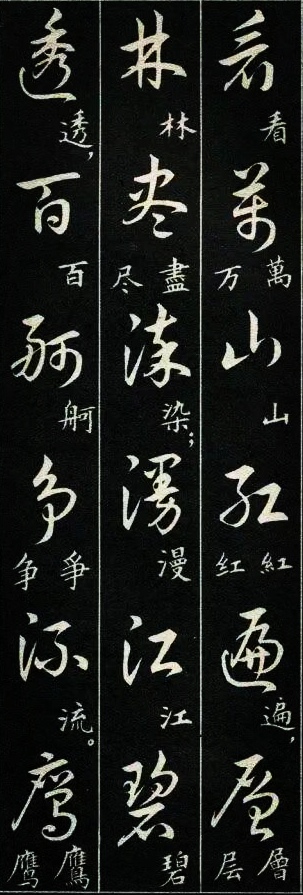 看看萬萬万山山红紅红遍遍,层層层
林林尽盡尽染染;漫漫江江碧碧
透透,百百舸舸争爭争流流。鹰鷹鹰